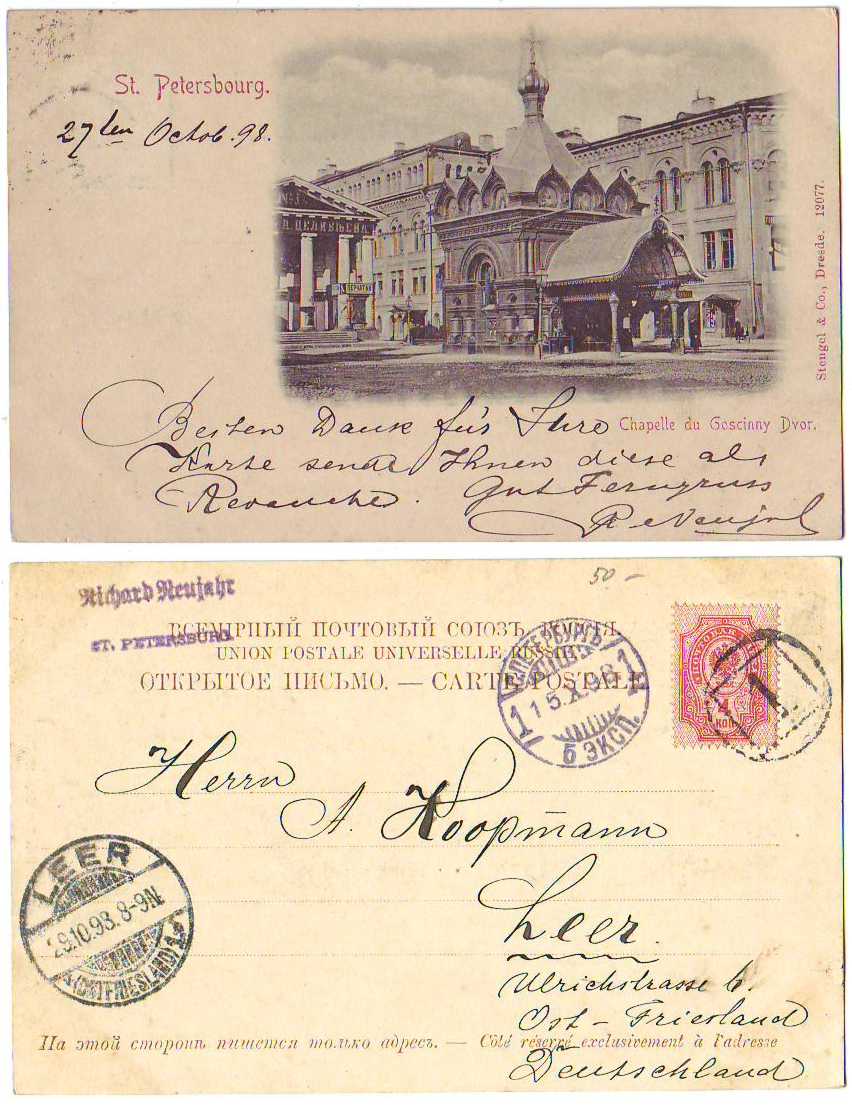 St. Petersbourg.
27ten Octob. 98.
ПЕРЧАТКИ
Stengel & Co., Dresde. 12077.
Chapelle du Goscinny Dvor.
Besten Dank für's Ihre
Karte sende Ihnen diese als
Revanche. Gut Ferngruss
R Neujahr
50 -
Richard Neujahr
ST. PETERSBURG.
ВСЕМІРНЫЙ ПОЧТОВЫЙ СОЮЗЪ. РОССІЯ.
UNION POSTALE UNIVERSELLE RUSSIE
ОТКРЫТОЕ ПИСЬМО. — CARTE POSTALE
С.ПЕТЕРБУРГЪ
1 15.X.98 1
5 ЭКСП.
4
КОП
1
Herrn
A. Koopmann
Leer.
Ulrichstrasse 6.
Ost-Friesland
Deutschland
LEER
29.10.98. 8-9N.
(OSTFRIESLAND)
На этой сторонѣ пишется только адресъ. — Côté réservé exclusivement à l'adresse